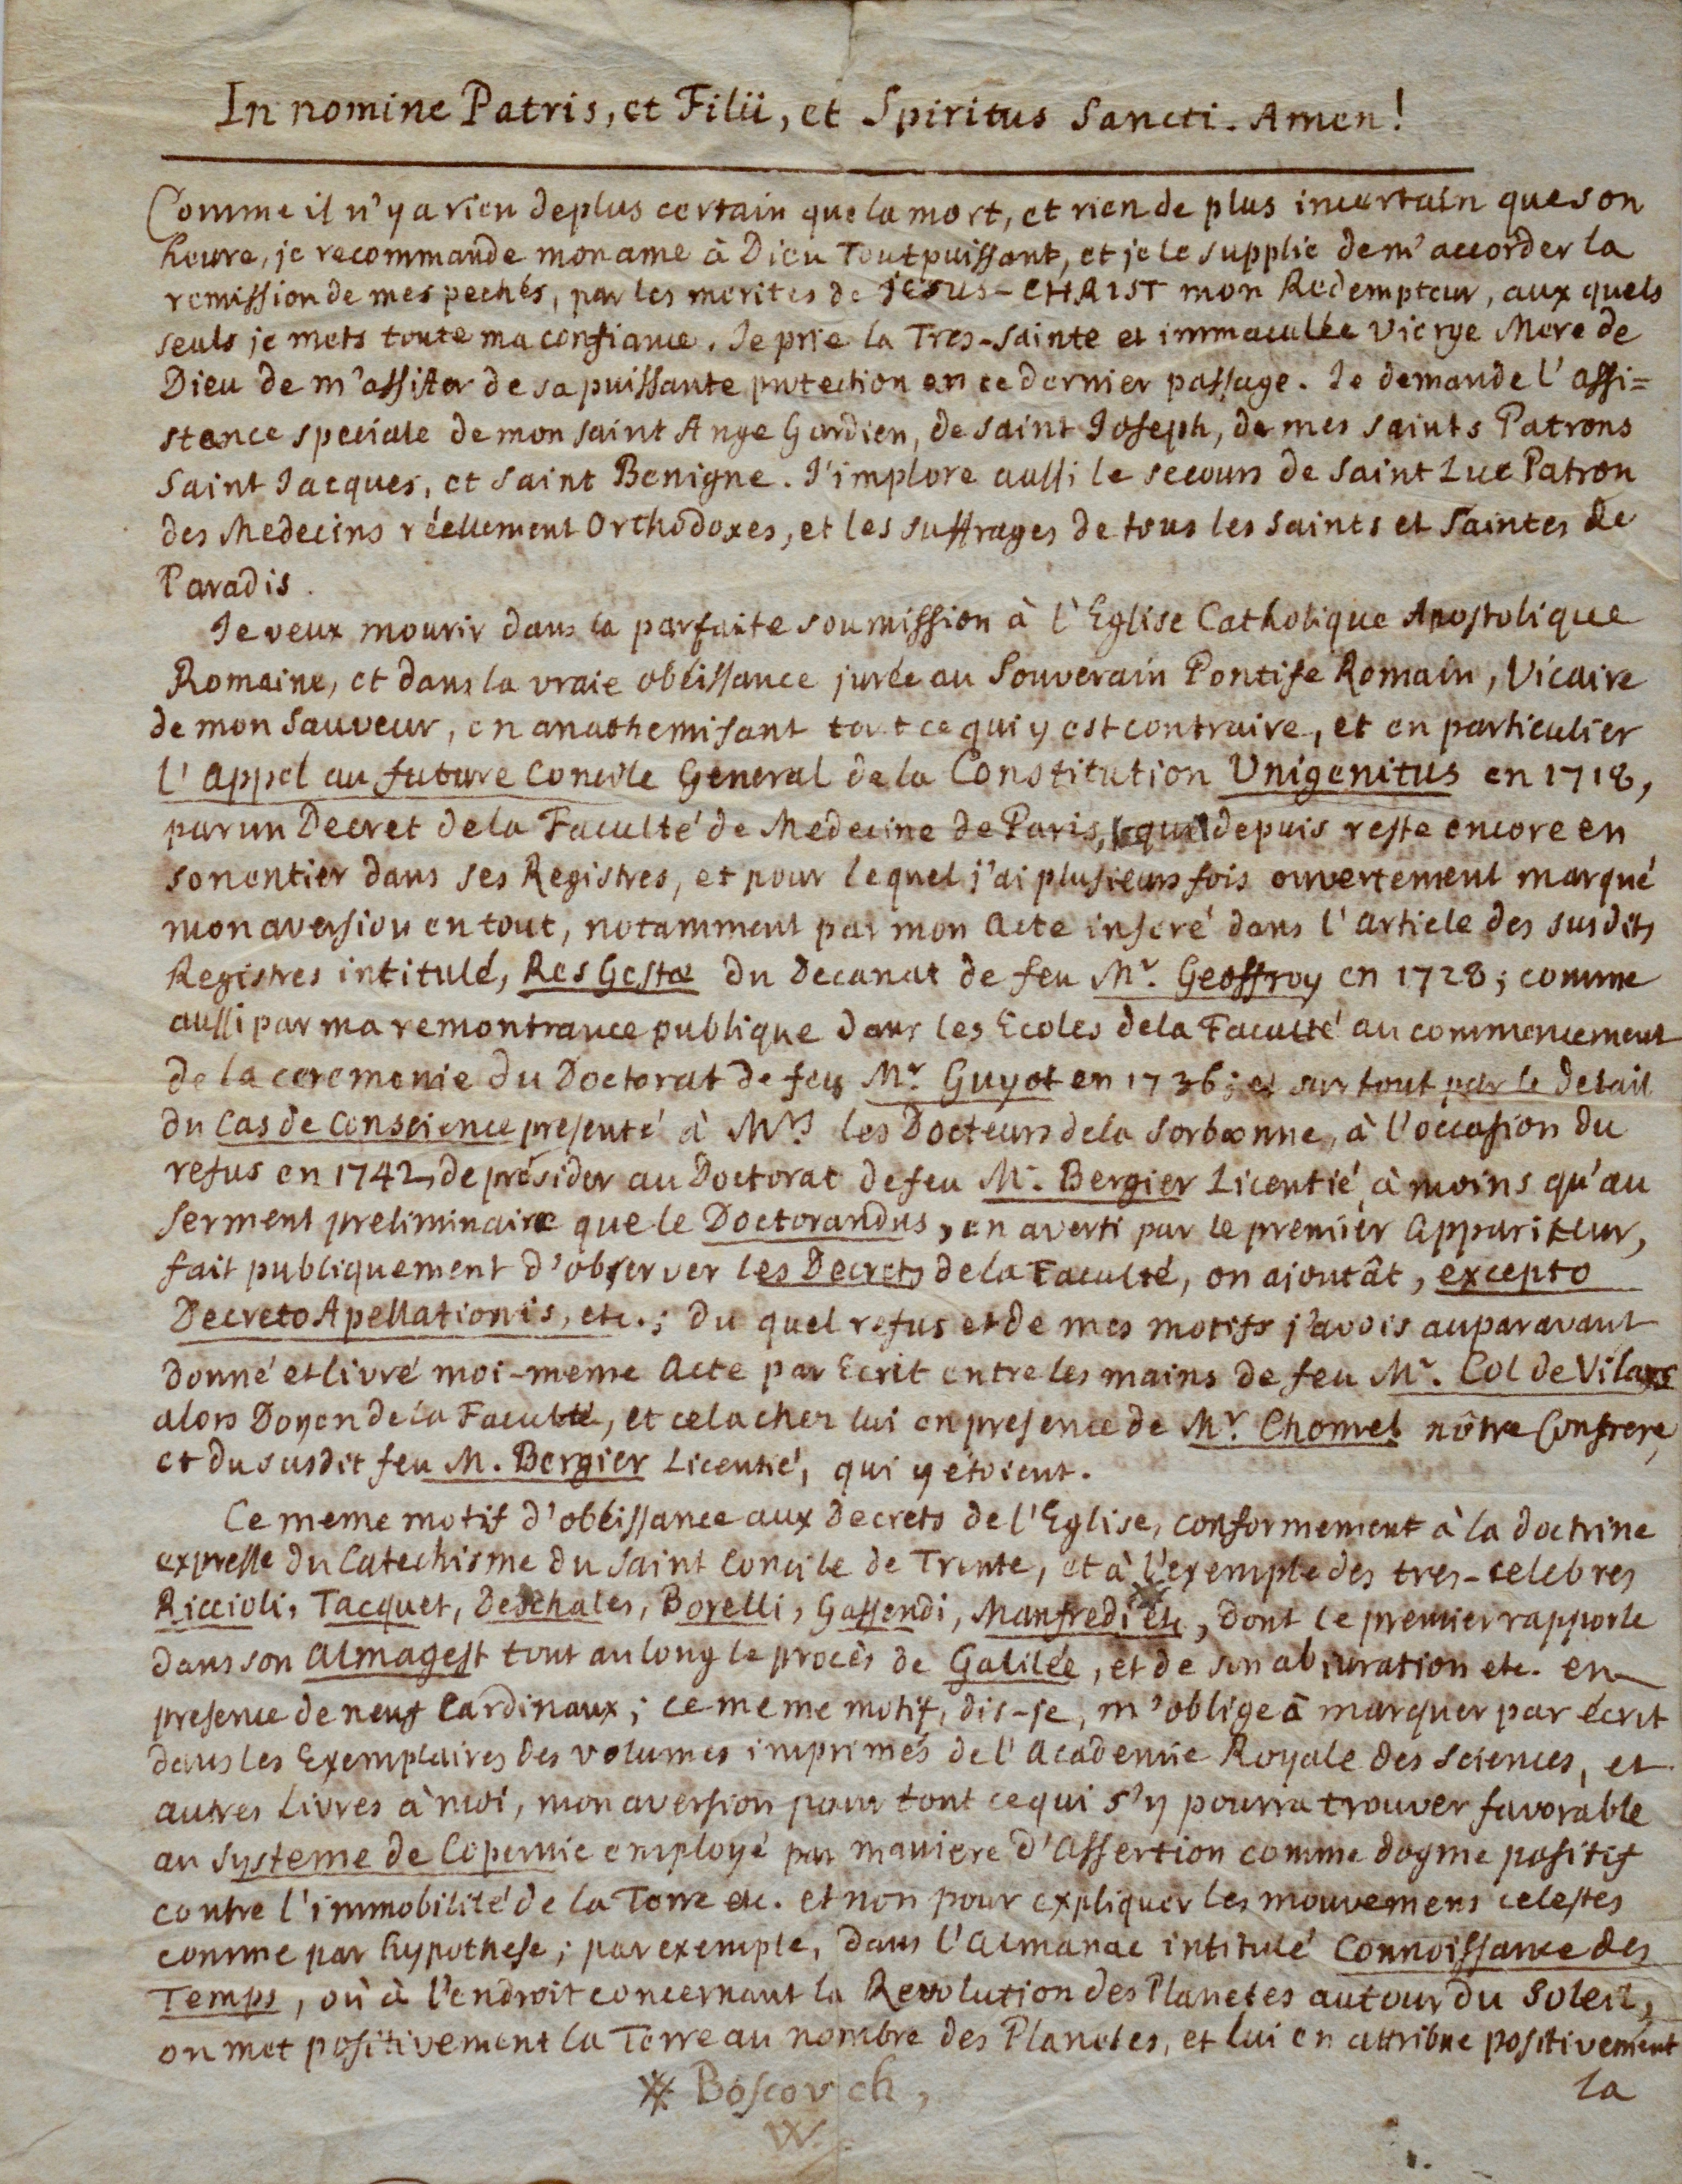 In nomine Patris, et Filii, et Spiritus Sancti. Amen!
Comme il n'y a rien de plus certain que la mort, et rien de plus incertain que son
heure, je recommande mon ame à Dieu Tout puissant, et je le supplie de m'accorder la
remission de mes pechés, par les merites de JESUS-CHRIST mon Redempteur, aux quels
seuls je mets toute ma confiance. Je prie la Tres-Sainte et immaculée Vierge Mere de
Dieu de m'assister de sa puissante protection en ce dernier passage. Je demande l'assi=
stence speciale de mon saint Ange Gardien, de saint Joseph, de mes saints Patrons
Saint Jacques, et Saint Benigne. J'implore aussi le secours de Saint Luc Patron
des Medecins réellement Orthodoxes, et les suffrages de tous les Saints et Saintes de
Paradis.
Je veux mourir dans la parfaite soumission à l'Eglise Catholique Apostolique
Romaine, et dans la vraie obéissance jurée au Souverain Pontife Romain, Vicaire
de mon Sauveur, en anathemisant tout ce qui y est contraire, et en particulier
l'Appel au future Concile General de la Constitution Unigenitus en 1718,
par un Decret de la Faculté de Medecine de Paris, lequel depuis reste encore en
son entier dans ses Registres, et pour lequel j'ai plusieurs fois ouvertement marqué
mon aversion en tout, notamment par mon Acte inseré dans l'Article des susdits
Registres intitulé, Res Gestæ du Decanat de feu Mr. Geoffroy en 1728; comme
aussi par ma remontrance publique dans les Ecoles de la Faculté au commencement
de la ceremonie du Doctorat de feu Mr. Guyot en 1736; et sur tout par le detail
du Cas de Conscience presenté à Mrs les Docteurs de la Sorbonne, à l'occasion du
refus en 1742, de présider au Doctorat de feu Mr. Bergier Licentié, à moins qu'au
Serment preliminaire que le Doctorandus, en averti par le premier Appariteur,
fait publiquement d'observer les Decrets de la Faculté, on ajoutât, excepto
Decreto Apellationis, etc.; du quel refus et de mes motifs j'avois auparavant
donné et livré moi-meme Acte par Ecrit entre les mains de feu Mr. Col de Vilars
alors Doyen de la Faculté, et cela chez lui en presence de Mr. Chomel nôtre Confrere,
et du susdit feu M. Bergier Licentié, qui y étoient.
Ce meme motif d'obéissance aux Decrets de l'Eglise, conformement à la doctrine
expresse du Catechisme du Saint Concile de Trente, et à l'exemple des tres-celebres
Riccioli, Tacquet, Deschales, Borelli, Gassendi, Manfredi * etc, dont le premier rapporte
dans son Almagest tout au long le procès de Galilée, et de son abiuration etc. en
presence de neuf Cardinaux; ce meme motif, dis-je, m'oblige à marquer par écrit
dans les Exemplaires des volumes imprimés de l'Academie Royale des Sciences, et
autres Livres à moi, mon aversion pour tout ce qui s'y pourra trouver favorable
au Systeme de Copernic employé par maniere d'Assertion comme dogme positif
contre l'immobilité de la Terre etc. et non pour expliquer les mouvemens celestes
comme par hypothese; par exemple, dans l'Almanac intitulé Connoissance des
Temps, où à l'endroit concernant la Revolution des Planetes autour du Soleil,
on met positivement la Terre au nombre des Planetes, et lui en attribue positivement
la
* Boscovich,